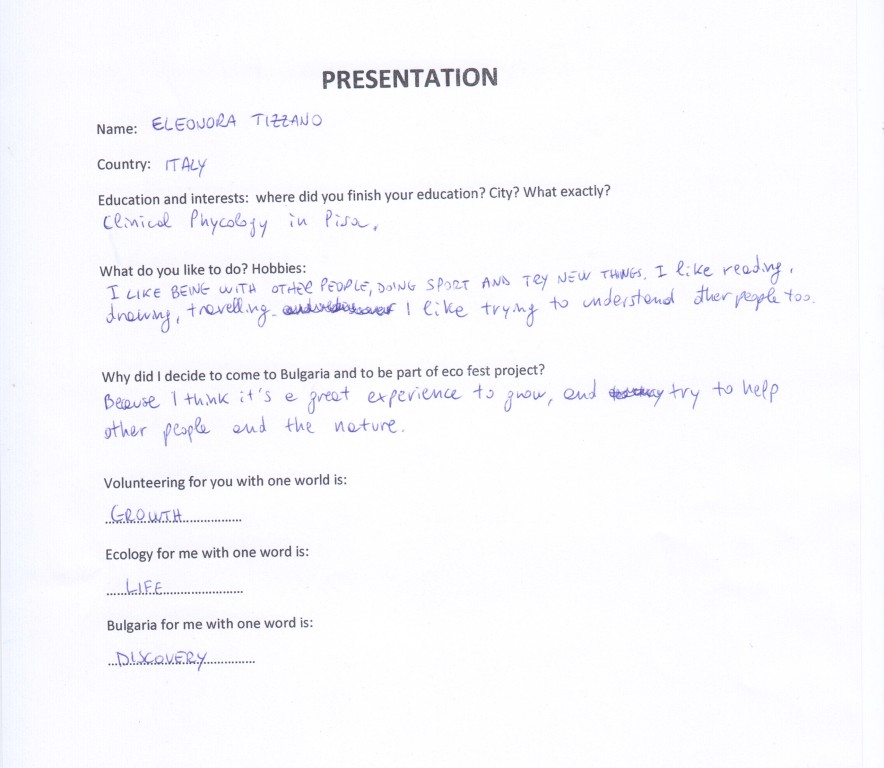 PRESENTATION
Name: ELEONORA TIZZANO
Country: ITALY
Education and interests: where did you finish your education? City? What exactly?
Clinical Phycology in Pisa.
What do you like to do? Hobbies:
I LIKE BEING WITH OTHER PEOPLE, DOING SPORT AND TRY NEW THINGS. I like reading,
drawing, travelling. I like trying to understand other people too.
Why did I decide to come to Bulgaria and to be part of eco fest project?
Because I think it's a great experience to grow, and try to help
other people and the nature.
Volunteering for you with one world is:
...GROWTH...............
Ecology for me with one word is:
......LIFE........................
Bulgaria for me with one word is:
...DISCOVERY...............